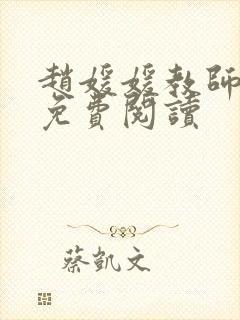 趙媛媛教師
免費閱讀
蔡凱文